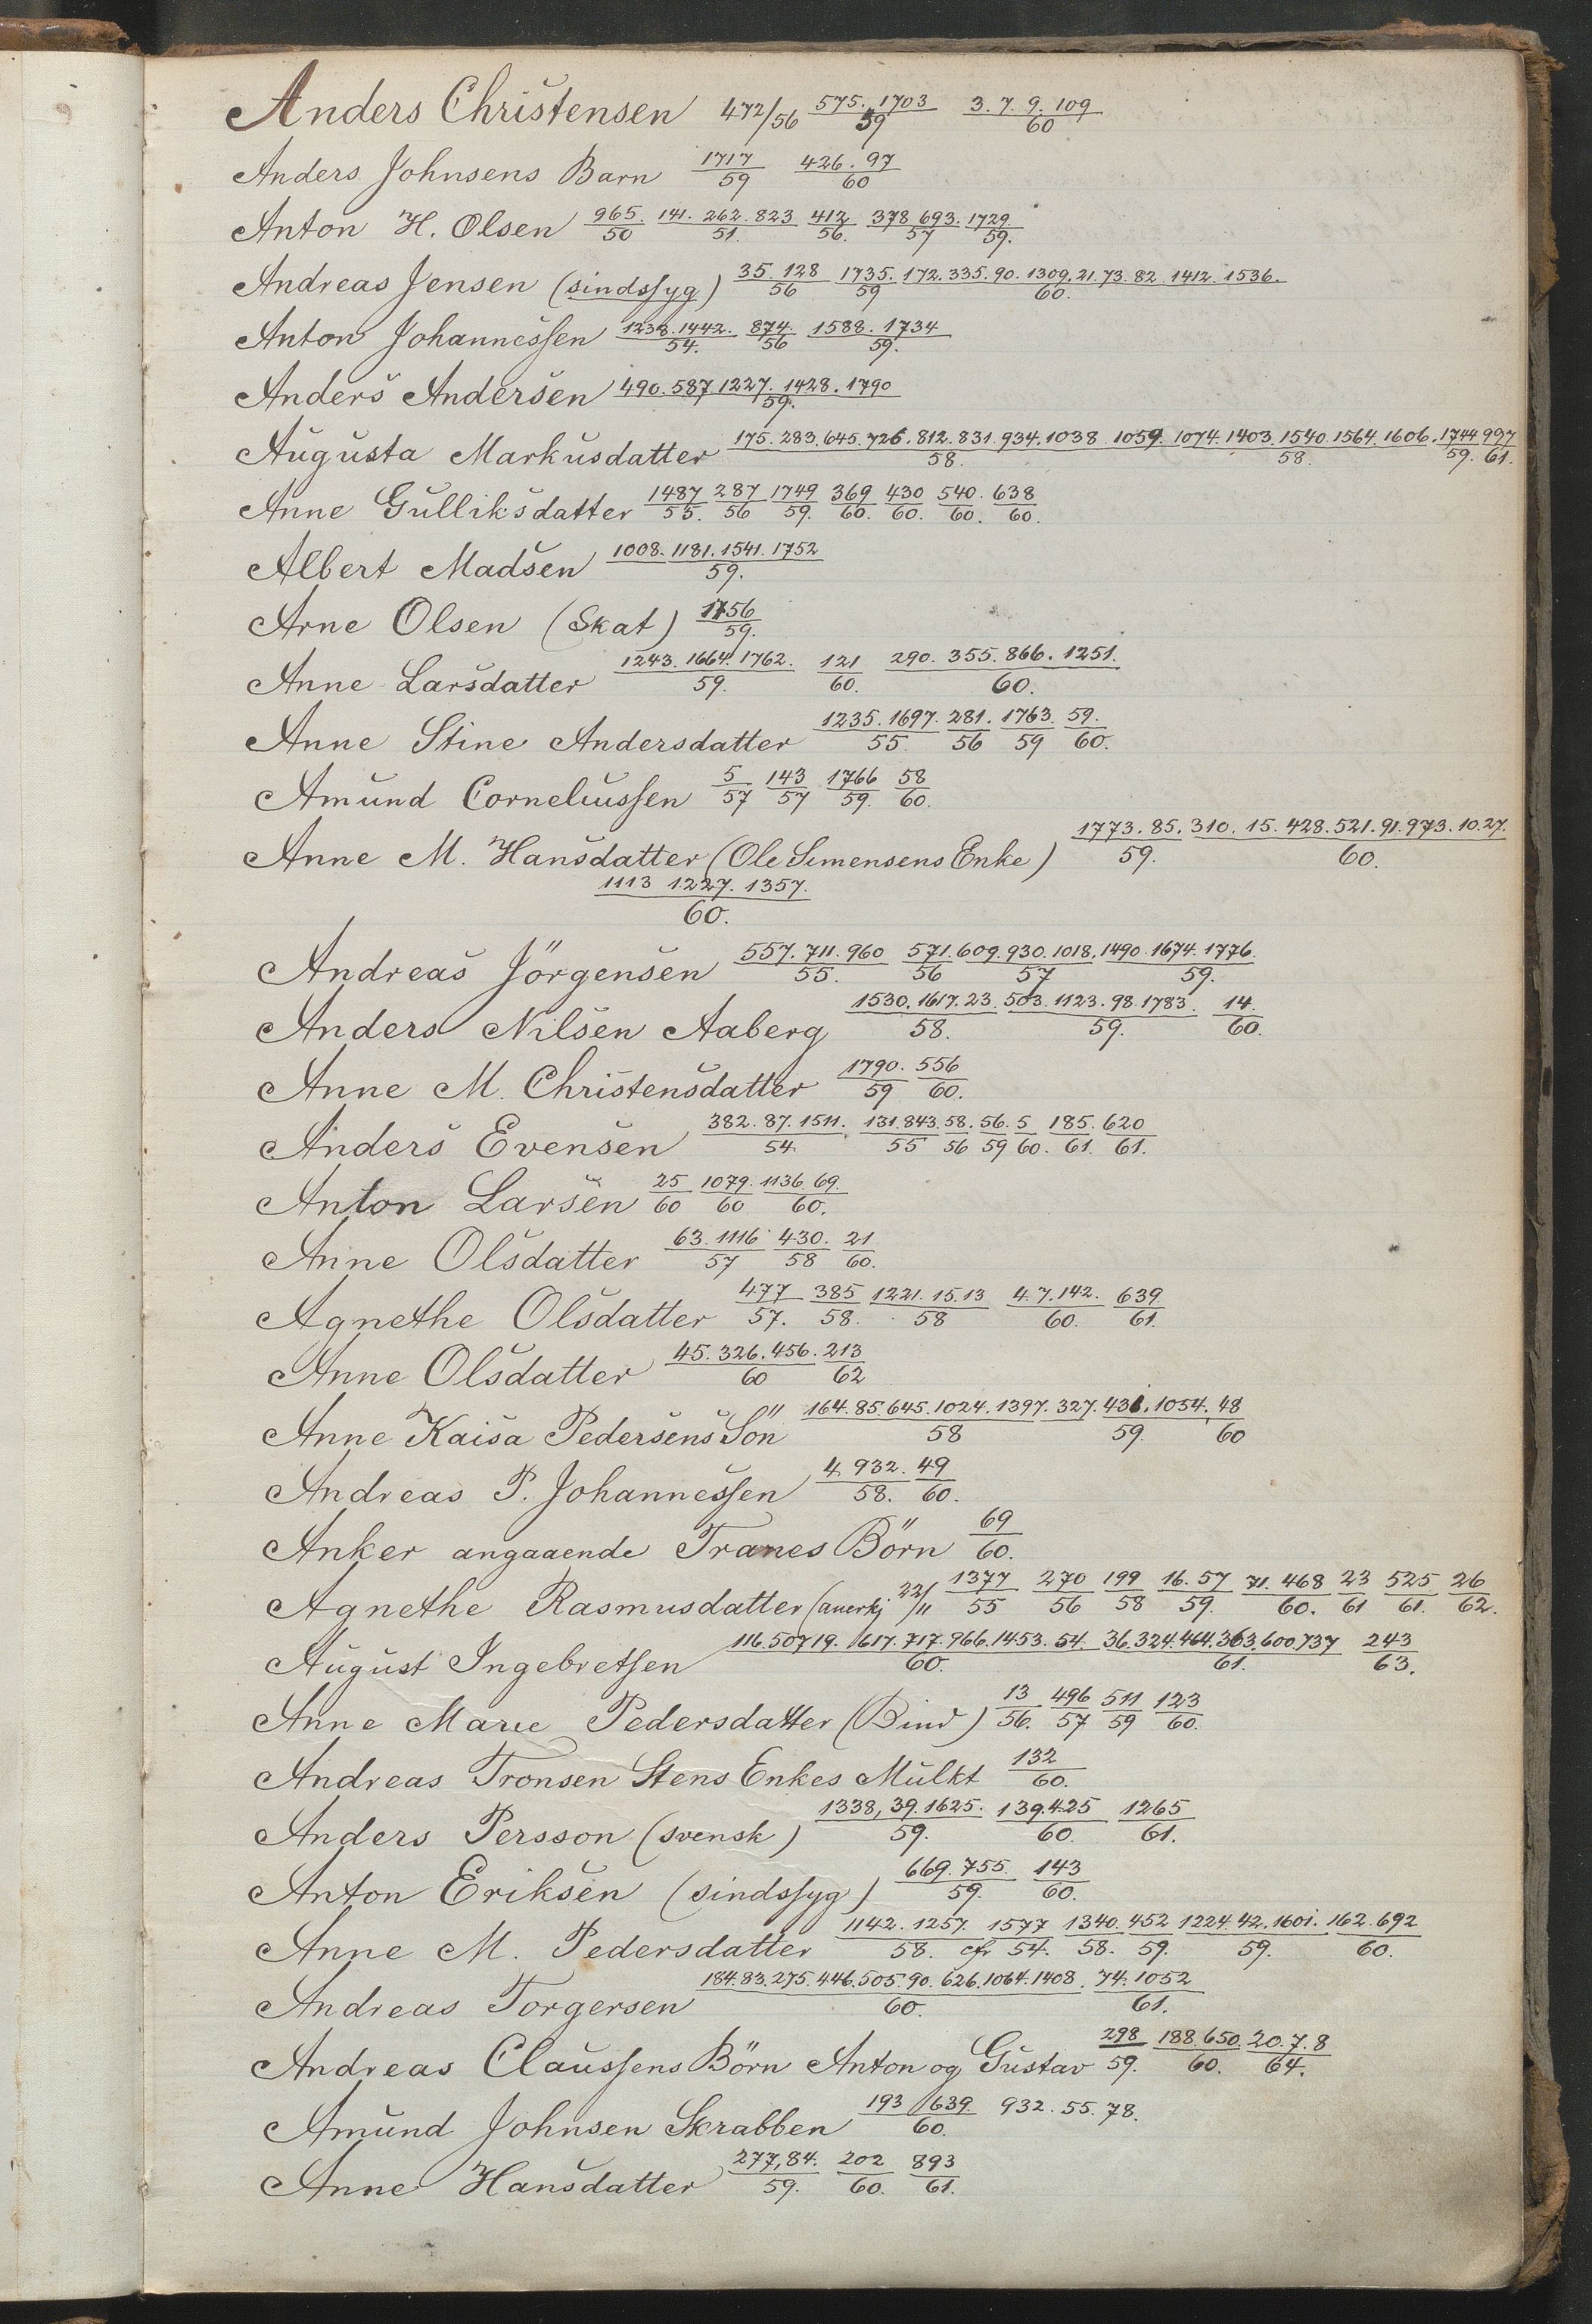 Anders Christensen 472/56 575. 1703/59 3. 7. 9. 109/60
Anders Johnsens Barn 1717/59 426. 97/60
Anton H. Olsen 965./50 141. 262. 823/51. 412/56. 378 693./57 1729/59.
Andreas Jensen (sindssyg) 35. 128/56 1735./59 172. 335. 90. 1309. 21. 73. 82. 1412. 1536./60.
Anton Johannessen 1238. 1442./54. 874./56 1588. 1734/59.
Anders Andersen 490. 587. 1227. 1428. 1790/59.
Augusta Markusdatter 175. 283. 645. 726. 812. 831. 934. 1038/58. 1059. 1074. 1403. 1540. 1564. 1606./58. 1744/59. 997/61.
Anne Gulliksdatter 1487/55. 287/56 1749/59. 369/60. 430/60. 540./60. 638/60.
Albert Madsen 1008. 1181. 1541. 1752/59.
Arne Olsen (Skat) 1756/59.
Anne Larsdatter 1243. 1664. 1762./59. 121/60. 290. 355. 866. 1251./60.
Anne Stine Andersdatter 1235. 1697./55. 281./56 1763./59 59./60.
Amund Corneliussen 5/57 143/57 1766/59. 58/60.
Anne M. Hansdatter (Ole Simensens Enke) 1773. 85./59. 310. 15. 428. 521. 91. 973. 10.27./60.
1113 1227. 1357./60.
Andreas Jörgensen 557. 711. 960/55. 571./56 609. 930. 1018./57 1490. 1674. 1776./59.
Anders Nilsen Aaberg 1530. 1617. 23./58. 503. 1123. 98. 1783./59. 14./60.
Anne M. Christensdatter 1790./59 556/60.
Anders Evensen 382. 87. 1511./54. 131. 843./55 58./56 56./59 5/60. 185./61. 620/61.
Anton Larsen 25/60 1079./60 1136. 69./60.
Anne Olsdatter 63. 1116/57 430./58 21/60.
Agnethe Olsdatter 477/57. 385/58. 1221. 15.13/58 4. 7. 142./60. 639/61.
Anne Olsdatter 45. 326. 456./60 213/62
Anne Kaisa Pedersens Sön 164. 85. 645. 1024. 1397./58 327. 431. 1054./59. 48/60
Andreas P. Johannessen 4. 932./58. 49/60.
Anker angaaende Tranes Börn 69/60.
Agnethe Rasmusdatter (anerkj 22/11 1377/55 270/56 199/58 16. 57/59. 71. 468/60. 23/61 525/61. 26/62.
August Ingebretsen 116. 507 19. 1617. 717. 966. 1453. 54./60. 36. 324. 464. 363. 600. 737/61. 243/63.
Anne Marie Pedersdatter (Bind) 13/56. 496/57 511/59 123/60.
Andreas Tronsen Stens Enkes Mulkt 132/60.
Anders Persson (svensk) 1338, 39. 1625./59. 139. 425/60. 1265/61.
Anton Eriksen (sindssyg) 669. 755./59. 143/60.
Anne M. Pedersdatter 1142. 1257./58. cfr 1577/54. 1340./58. 452/59. 1224. 42. 1601./59. 162. 692/60.
Andreas Torgersen 184. 83. 275. 446. 505. 90. 626. 1064. 1408./60. 74. 1052/61.
Andreas Claussens Börn Anton og Gustav 298/59. 188. 650./60. 20. 7. 8/64.
Amund Johnsen Skrabben 193 1639./60. 932. 55. 78.
Anne Hansdatter 277, 84./59. 202/60. 893/61.